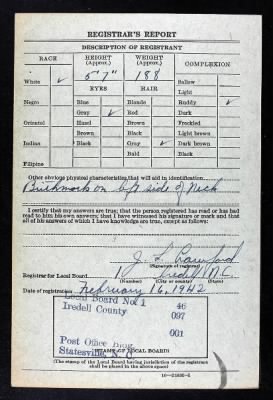 REGISTRAR'S REPORT
DESCRIPTION OF REGISTRANT
RACE HEIGHT (Approx.) WEIGHT (Approx.) COMPLEXION
White ✓ 5'7" 188 Sallow
EYES HAIR Light
Negro Blue Blonde Ruddy ✓
Gray ✓ Red Dark
Oriental Hazel Brown Freckled
Brown Black Light brown
Indian Black Gray ✓ Dark brown
Bald Black
Filipino
Other obvious physical characteristics that will aid in identification
Birthmark on left side of Neck
I certify that my answers are true; that the person registered has read or has had
read to him his own answers; that I have witnessed his signature or mark and that
all of his answers of which I have knowledge are true, except as follows:
(Signature of registrar)
Registrar for Local Board 1 Iredell N.C.
(Number) (City or county) (State)
Date of registration February 16, 1942
Local Board No. 1 46
Iredell County 097
001
Post Office Bldg.
Statesville, N. C.
(STAMP OF LOCAL BOARD)
(The stamp of the Local Board having jurisdiction of the registrant
shall be placed in the above space)